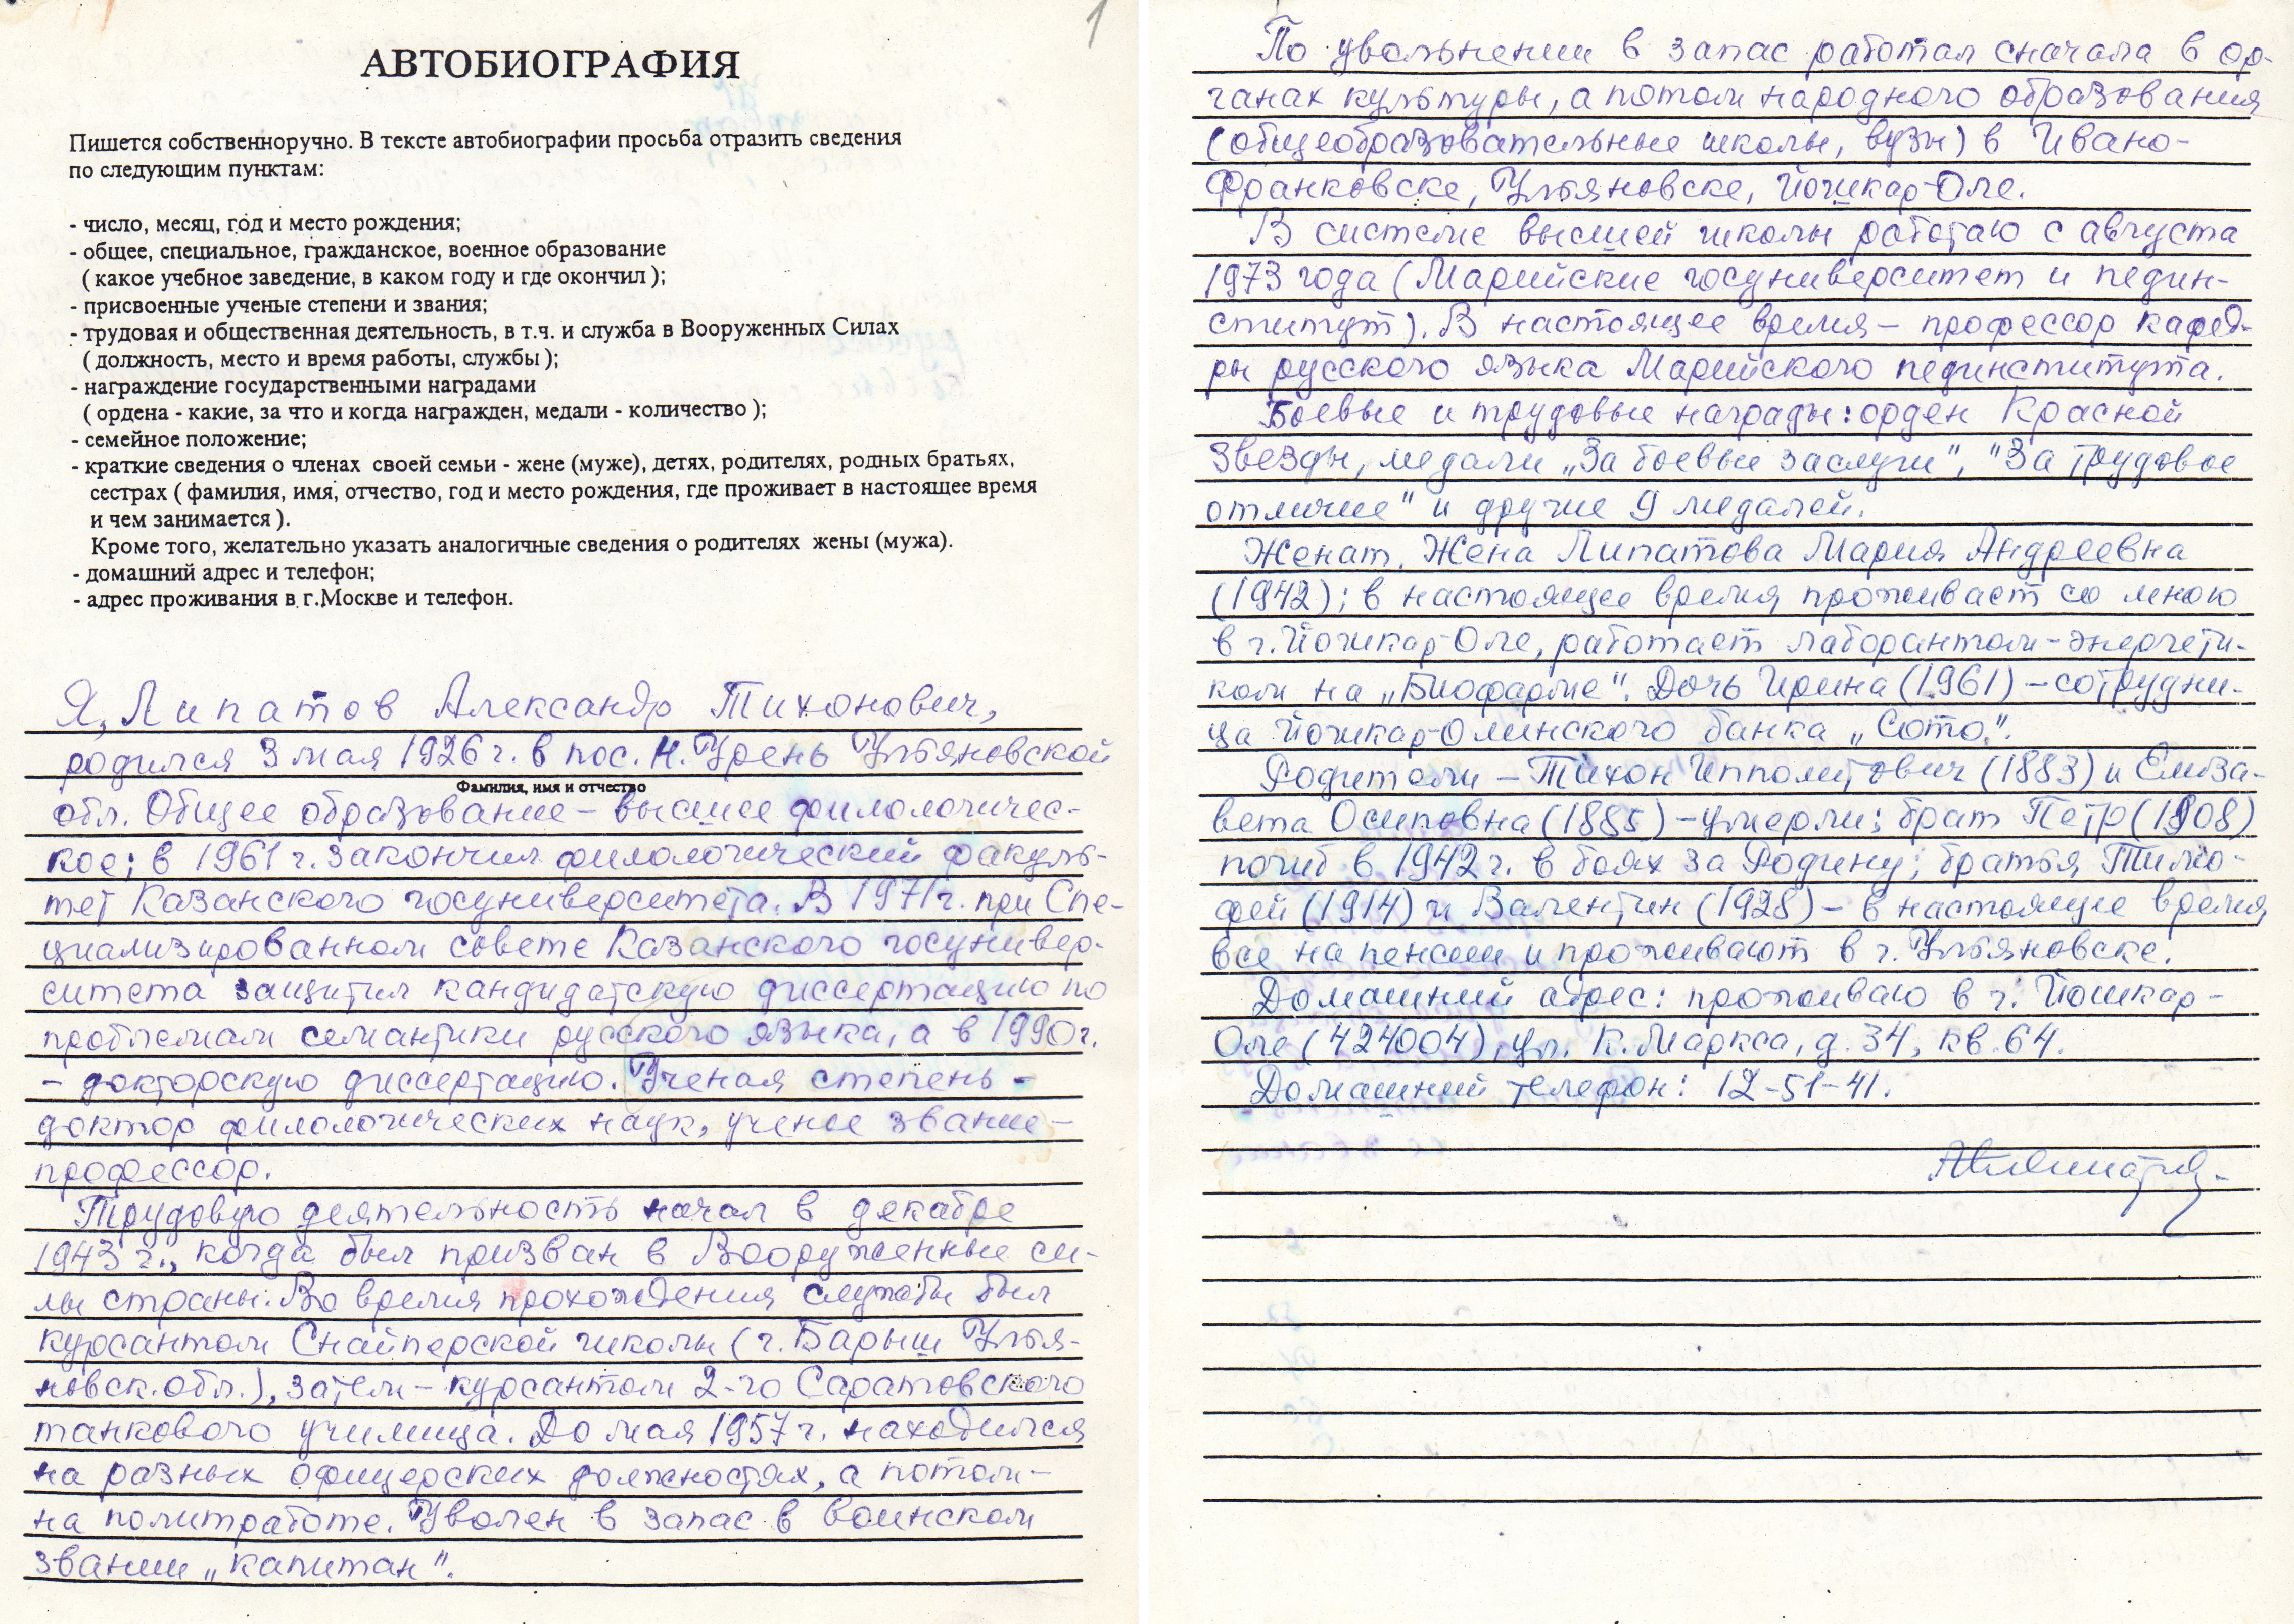 1
АВТОБИОГРАФИЯ
Пишется собственноручно. В тексте автобиографии просьба отразить сведения
по следующим пунктам:
- число, месяц, год и место рождения;
- общее, специальное, гражданское, военное образование
( какое учебное заведение, в каком году и где окончил );
- присвоенные ученые степени и звания;
- трудовая и общественная деятельность, в т.ч. и служба в Вооруженных Силах
( должность, место и время работы, службы );
- награждение государственными наградами
( ордена - какие, за что и когда награжден, медали - количество );
- семейное положение;
- краткие сведения о членах своей семьи - жене (муже), детях, родителях, родных братьях,
сестрах ( фамилия, имя, отчество, год и место рождения, где проживает в настоящее время
и чем занимается ).
Кроме того, желательно указать аналогичные сведения о родителях жены (мужа).
- домашний адрес и телефон;
- адрес проживания в г.Москве и телефон.
Я, Липатов Александр Тихонович,
родился 3 мая 1926 г. в пос. Н. Урень Ульяновской
Фамилия, имя и отчество
обл. Общее образование – высшее филологичес-
кое; в 1961 г. закончил филологический факуль-
тет Казанского госуниверситета. В 1971г. при Спе-
циализированном совете Казанского госунивер-
ситета защитил кандидатскую диссертацию по
проблемам семантики русского языка, а в 1990г.
– докторскую диссертацию. Ученая степень –
доктор филологических наук, ученое звание –
профессор.
Трудовую деятельность начал в декабре
1943 г., когда был призван в Вооруженные си-
лы страны. Во время прохождения службы был
курсантом Снайперской школы (г. Барыш Улья-
новск. обл.), затем – курсантом 2-го Саратовского
танкового училища. До мая 1957 г. находился
на разных офицерских должностях, а потом –
на политработе. Уволен в запас в воинском
звании „капитан".
По увольнении в запас работал сначала в ор-
ганах культуры, а потом народного образования
(общеобразовательные школы, вузы) в Ивано-
Франковске, Ульяновске, Йошкар-Оле.
В системе высшей школы работаю с августа
1973 года (Марийские госуниверситет и педин-
ститут). В настоящее время – профессор кафед-
ры русского языка Марийского пединститута.
Боевые и трудовые награды: орден Красной
Звезды, медали „За боевые заслуги", "За трудовое
отличие" и другие 9 медалей.
Женат. Жена Липатова Мария Андреевна
(1942); в настоящее время проживает со мною
в г. Йошкар-Оле, работает лаборантом-энергети-
ком на „Биофарме". Дочь Ирина (1961) – сотрудни-
ца Йошкар-Олинского банка „Сото".
Родители – Тихон Ипполитович (1883) и Елиза-
вета Осиповна (1885) – умерли; брат Петр (1908)
погиб в 1942 г. в боях за Родину; братья Тимо-
фей (1914) и Валентин (1928) – в настоящее время
все на пенсии и проживают в г. Ульяновске.
Домашний адрес: проживаю в г. Йошкар-
Оле (424004), ул. К. Маркса, д. 34, кв. 64.
Домашний телефон: 12-51-41.